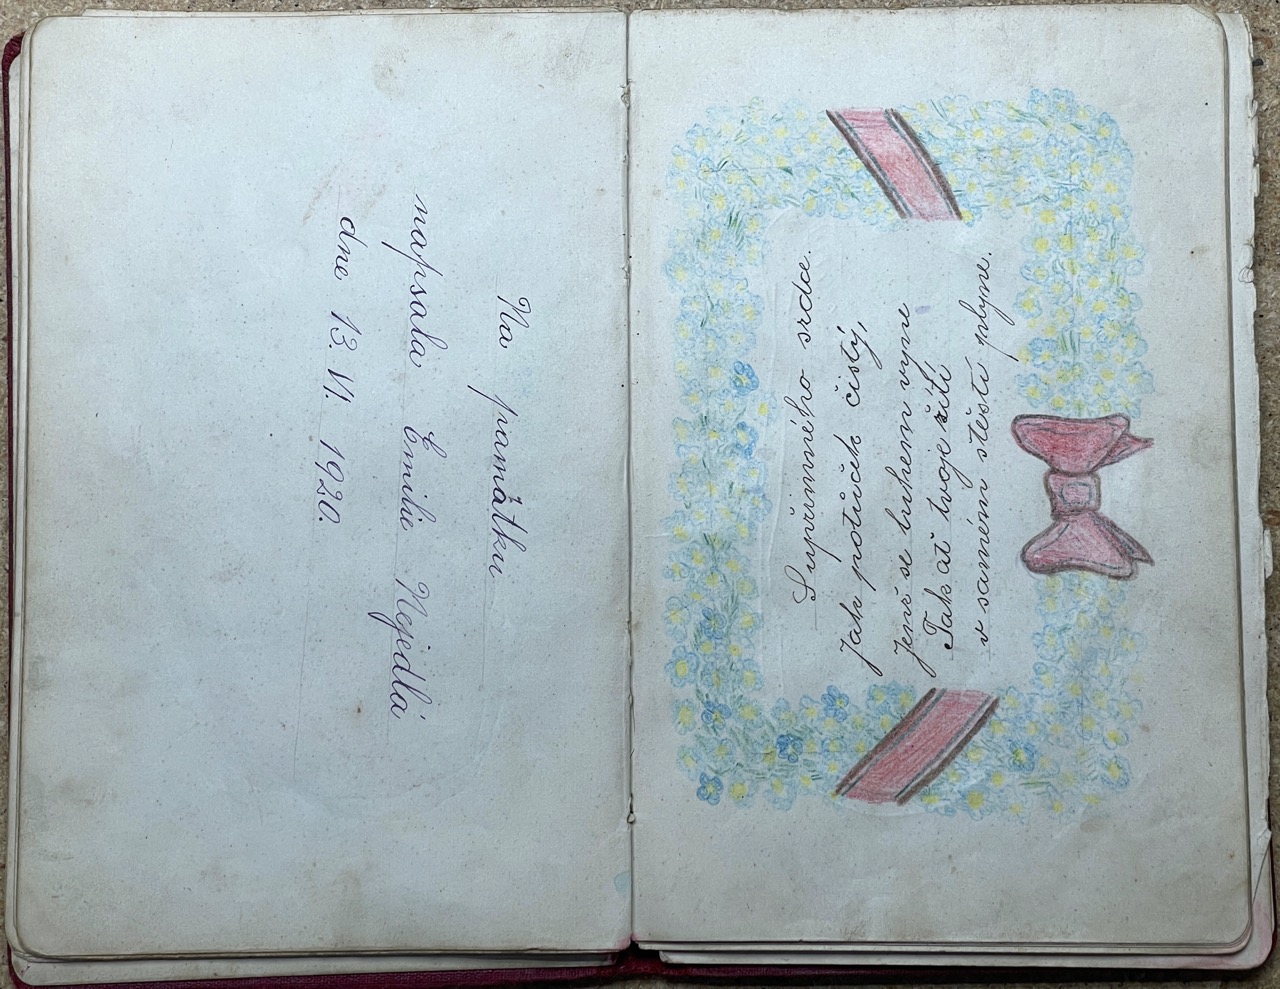 Na památku
napsala Emilie Nejedlá
dne 13. VI. 1920.
S upřímného srdce.
Jak potůček čistý,
jenž se luhem vyne
Tak ať tvoje žití
v samém štěstí plyne.